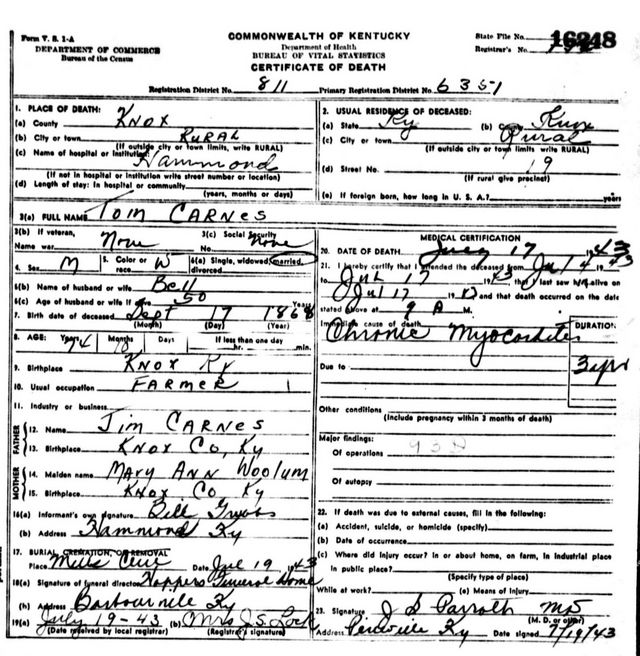 Form V. S. 1-A
DEPARTMENT OF COMMERCE
Bureau of the Census
COMMONWEALTH OF KENTUCKY
Department of Health
BUREAU OF VITAL STATISTICS
CERTIFICATE OF DEATH
State File No. 16248
Registrar's No.
Registration District No. 811 Primary Registration District No. 6351
1. PLACE OF DEATH:
(a) County Knox
(b) City or town Rural
(If outside city or town limits, write RURAL)
(c) Name of hospital or institution: Hammond
(If not in hospital or institution write street number or location)
(d) Length of stay: In hospital or community
(years, months or days)
2. USUAL RESIDENCE OF DECEASED:
(a) State Ky (b) Knox
(c) City or town Rural
(If outside city or town limits, write RURAL)
(d) Street No. 19
(If rural give precinct)
(e) If foreign born, how long in U. S. A.? years
3(a) FULL NAME Tom Carnes
3(b) If veteran, Name war None
3(c) Social Security No. None
4. Sex M 5. Color or race W 6(a) Single, widowed, married, divorced
6(b) Name of husband or wife Bell
6(c) Age of husband or wife if alive 50 Years
7. Birth date of deceased Sept 17 1868
(Month) (Day) (Year)
8. AGE: Years 74 Months 10 Days If less than one day
hr. min.
9. Birthplace Knox Ky
10. Usual occupation Farmer
11. Industry or business
FATHER
12. Name Jim Carnes
13. Birthplace Knox Co, Ky
MOTHER
14. Maiden name Mary Ann Woolum
15. Birthplace Knox Co, Ky
16(a) Informant's own signature Bill
(b) Address Hammond Ky
17. BURIAL, CREMATION, OR REMOVAL
Place Mills Cem Date Jul 19 1943
18(a) Signature of funeral director Hoppers Funeral Home
(b) Address Barbourville Ky
19(a) July 19-43 (b) Mrs J.S. Lock
(Date received by local registrar) (Registrar's signature)
MEDICAL CERTIFICATION
20. DATE OF DEATH July 17 1943
21. I hereby certify that I attended the deceased from Jul 4 1943
to Jul 17 1943, that I last saw him alive on
Jul 17 1943 and that death occurred on the date
stated above at 9 A M.
Immediate cause of death DURATION
Chronic Myocarditis
Due to
Other conditions
(Include pregnancy within 3 months of death)
Major findings: 93D
Of operations
Of autopsy
22. If death was due to external causes, fill in the following:
(a) Accident, suicide, or homicide (specify)
(b) Date of occurrence
(c) Where did injury occur? In or about home, on farm, in industrial place
in public place?
(Specify type of place)
While at work? (e) Means of Injury
23. Signature J S Parrott MD
(M. D. or other)
Address Ky Date signed 7/19/43